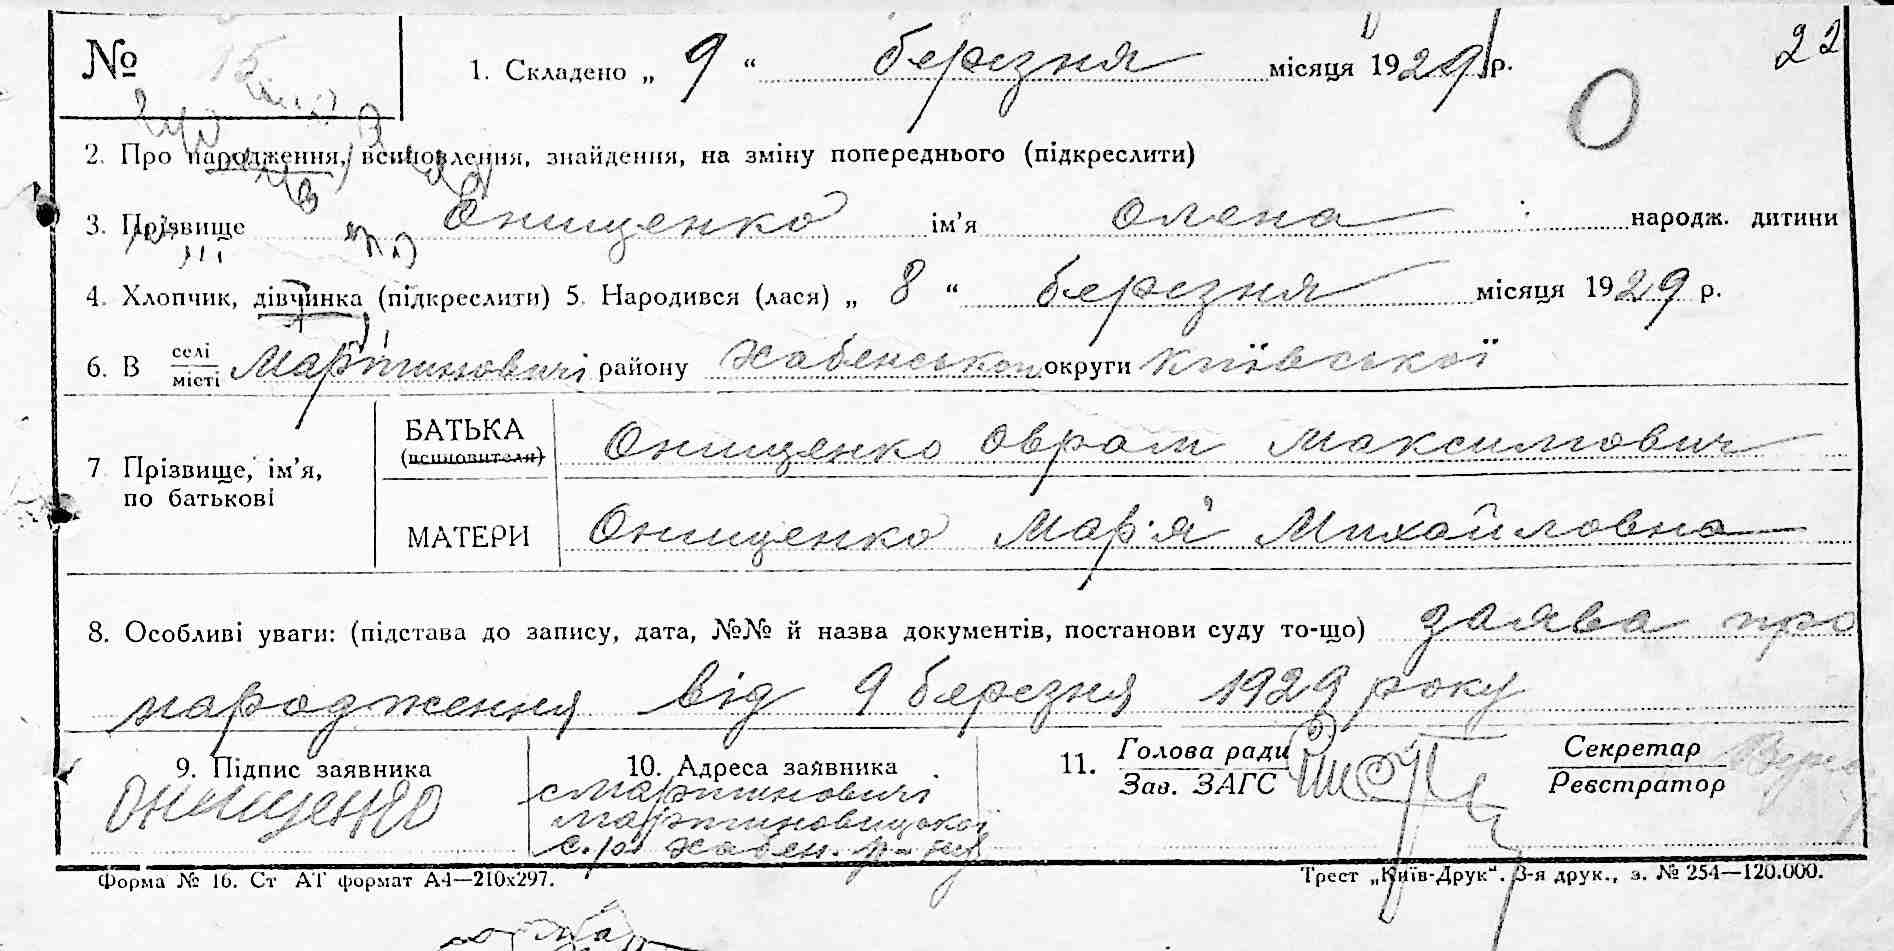 № 15
1. Складено „ 9 “ березня місяця 1929 р.
22
2. Про народження, всиновлення, знайдення, на зміну попереднього (підкреслити)
3. Прізвище Онищенко ім’я Олена народж. дитини
4. Хлопчик, дівчинка (підкреслити) 5. Народився (лася) „ 8 “ березня місяця 1929 р.
6. В селі місті Мартиновичі району Хабенської округи Київської
7. Прізвище, ім’я, по батькові
БАТЬКА (всиновителя) Онищенко Оврам Максимович
МАТЕРИ Онищенко Мар'я Михайловна
8. Особливі уваги: (підстава до запису, дата, №№ й назва документів, постанови суду то-що) заява про
народження від 9 березня 1929 року
9. Підпис заявника
Онищенко
10. Адреса заявника
с Мартиновичі
Мартиновицької
с.р. Хабен. р-ну
11. Голова ради
Зав. ЗАГС
Секретар
Реєстратор
Форма № 16. Ст АТ формат А4—210х297.
Трест „Київ-Друк“. 3-я друк., з. № 254—120.000.